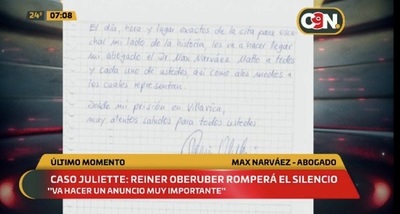 24°
07:08
C9N
El día, hora y lugar exactos de la cita para escu-
char mi lado de la historia, les va a hacer llegar
mi abogado el Dr. Max Narváez Matto a todos
y cada uno de ustedes, así como a los medios a
los cuales representan.
Desde mi prisión en Villarrica,
muy atentos saludos para todos ustedes.
ÚLTIMO MOMENTO
MAX NARVÁEZ - ABOGADO
CASO JULIETTE: REINER OBERUBER ROMPERÁ EL SILENCIO
"VA HACER UN ANUNCIO MUY IMPORTANTE"